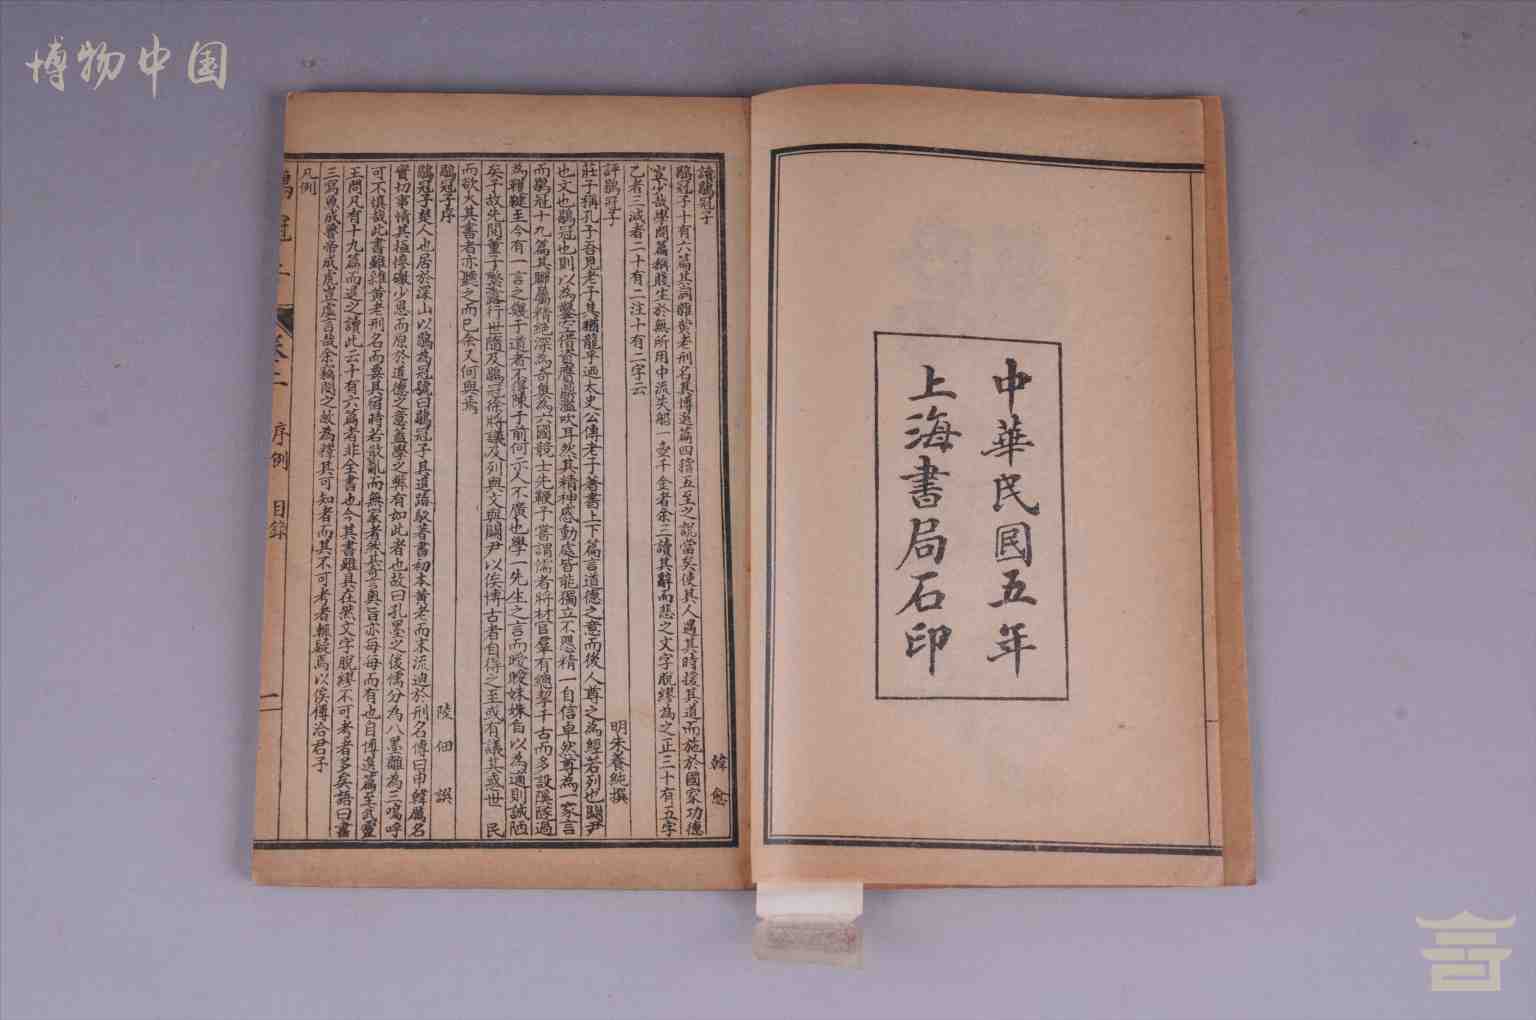 博物中国
中華民國五年
上海書局石印
讀鶡冠子
韓愈
鶡冠子十有六篇其詞雜黃老刑名其博選篇四稽五至之說當矣使其人遇其時援其道而施於國家功德
豈少哉學問篇稱賤生於無所用中流失船一壺千金者余三讀其辭而悲之文字脫繆為之正三十有五字
乙者三滅者二十有二注十有二字云
評鶡冠子
明朱養純撰
莊子稱孔子吾見老子其猶龍乎迺太史公傳老子著書上下篇言道德之意而後人尊之為經若列也關尹
也文也鶡冠也則以為鑿空借資贋鼎濫吹耳然其精神感動處皆能獨立不愳精一自信卓然尊為一家言
而鶡冠十九篇其聯屬精絕深為奇奧為六國競士先鞭子嘗謂儒者將材官羣有總挈千古而多設隘過
為種鍵至今有一言之幾于道者不得陳于前何示人不廣也學一先生之言而曖曖姝姝自以為適則誠陋
矣子故先閱董子繁露行世隨及鶡冠徐將議及列與文與關尹以俟博古者自得之至或有議其惑世民
而欲火其書者亦聽之而已余又何與焉
鶡冠子序
陸佃譔
鶡冠子楚人也居於深山以鶡為冠號曰鶡冠子其道踳駁著書初本黃老而末流迪於刑名傳曰申韓厲名
實切事情其極慘礉少恩而原於道德之意蓋學之弊有如此者也故曰孔墨之後儒分為八墨離為三嗚呼
可不慎哉此書雖雜黃老刑名而要其宿時若散亂而無家者然其奇言奧旨亦每每而有也自博選篇至武靈
王問凡有十九篇而退之讀此云十有六篇者非全書也今其書雖具在然文字脫繆不可考者多矣語曰書
三寫魚成魯帝成虎豈虛言哉余竊閔之故為釋其可知者而其不可考者輒疑焉以俟博洽君子
凡例
序例 目錄
一